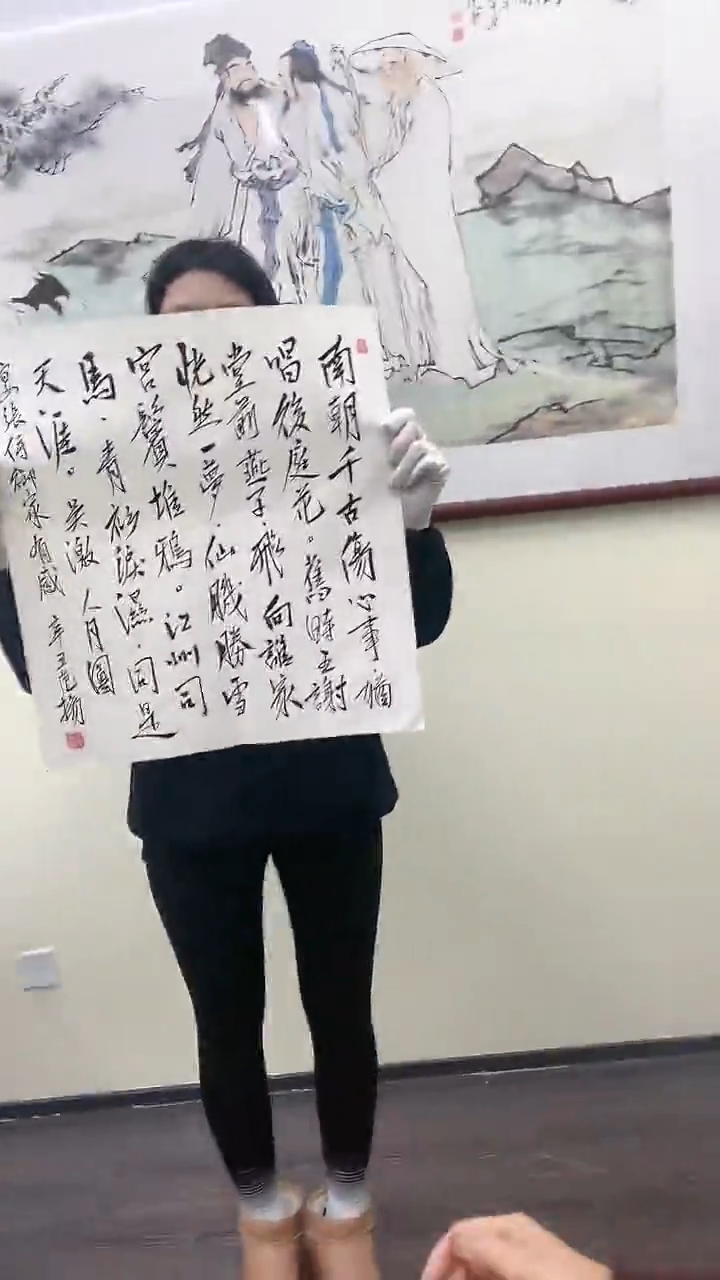 南朝千古傷心事·猶
唱後庭花。舊時王謝
堂前燕子·飛向誰家
恍然一夢·仙肌勝雪
宮鬢堆鴉。江州司
馬·青衫淚濕·同是
天涯。吳激 人月圓
宴張侍御家有感 辛丑范揚